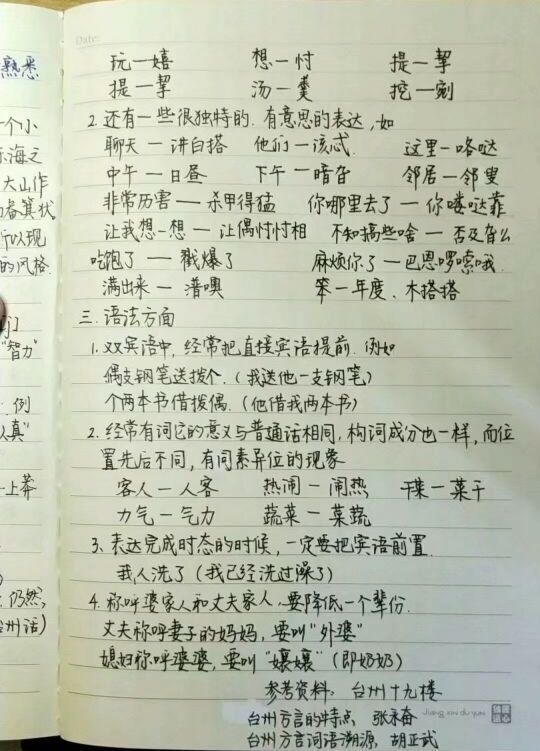 Date:
玩一嬉 想一忖 提一挈
提一挈 汤一羹 挖一剜
2.还有一些很独特的、有意思的表达,如
聊天 — 讲白搭 他们 — 该忒 这里一咯哒
中午 一 日昼 下午 — 暗 邻居 — 邻叟
非常厉害 — 杀甲得猛 你哪里去了 — 你喽哒靠
让我想一想 — 让偶忖忖相 不知搞些啥 — 否及旮么
吃饱了 — 戳爆了 麻烦你了 — 巴恩啰嗦哦
满出来 — 潽噢 笨一年度、木搭搭
三.语法方面
1.双宾语中,经常把直接宾语提前.例如
偶支钢笔送拨个.(我送他一支钢笔)
个两本书借拨偶.(他借我两本书)
2.经常有词它的意义与普通话相同,构词成分也一样,而位
置先后不同,有同素异位的现象
客人 — 人客 热闹 — 闹热 干菜 — 菜干
力气 — 气力 蔬菜 — 菜蔬
3、表达完成时态的时候,一定要把宾语前置.
我人洗了(我已经洗过澡了)
4.称呼婆家人和丈夫家人,要降低一个辈份.
丈夫称呼妻子的妈妈,要叫"外婆"
媳妇称呼婆婆,要叫"嬢嬢"(即奶奶)
参考资料: 台州十九楼
台州方言的特点 张永奋
台州方言词语溯源,胡正武
Jiang xin du yun
熟悉
一个小
东海之
大山作
箕状
所以现
的风格.
们
"智力"
例
认真"
一上莽
仍然,
台州话)